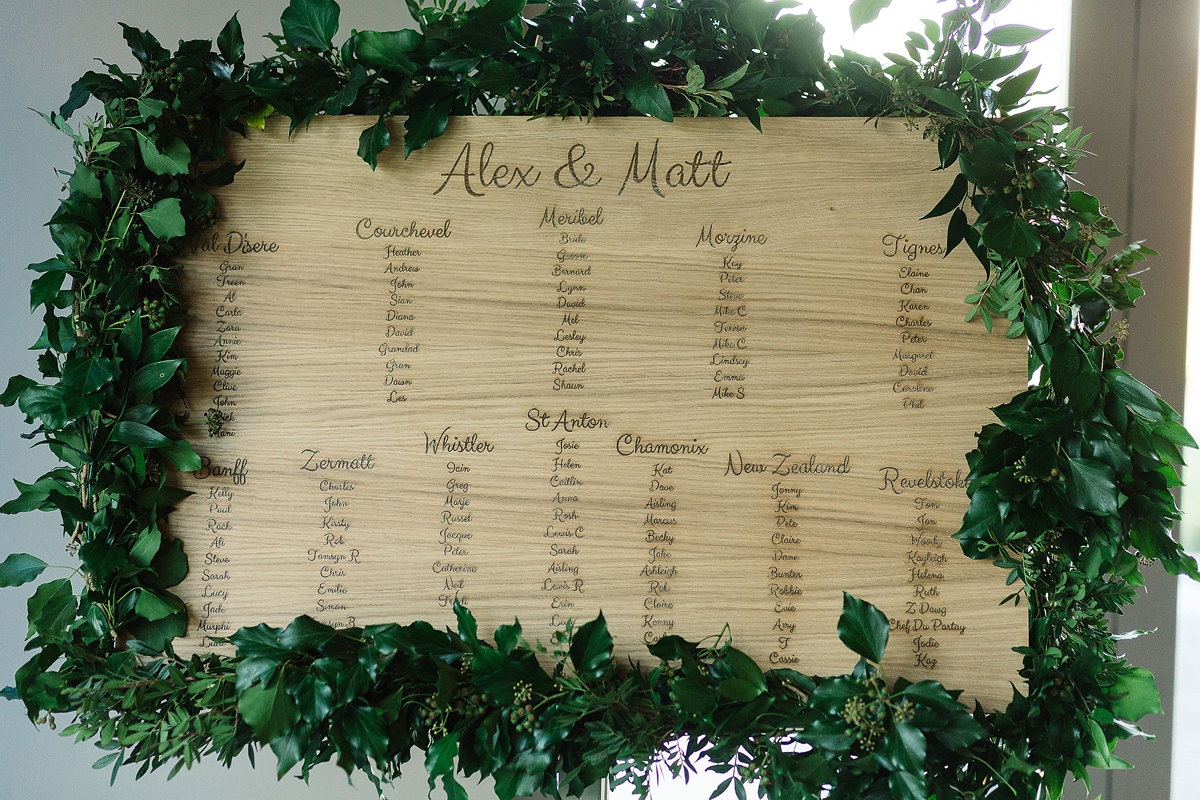 Alex & Matt
Val Disere
Gran
Treen
Al
Carla
Zara
Annie
Kim
Maggie
Clive
John
Mani
Courchevel
Heather
Andrew
John
Sian
Diana
David
Grandad
Gran
Dawn
Les
Meribel
Bride
Groom
Bernard
Lynn
David
Mel
Lesley
Chris
Rachel
Shaun
Morzine
Kay
Peter
Steve
Mike C
Terese
Mike C
Lindsay
Emma
Mike S
Tignes
Elaine
Chan
Karen
Charles
Peter
Margaret
David
Caroline
Phil
Banff
Kelly
Paul
Rach
Ali
Steve
Sarah
Lucy
Jade
Murphi
Zermatt
Charles
John
Kirsty
Rob
Tamsyn R
Chris
Emilie
Simon
Whistler
Iain
Greg
Marje
Russel
Jacque
Peter
Catherine
Neil
St Anton
Josie
Helen
Caitlin
Anna
Rosh
Lewis C
Sarah
Aisling
Lewis R
Erin
Chamonix
Kat
Dave
Aisling
Marcus
Becky
Jake
Ashleigh
Rob
Claire
Kenny
New Zealand
Jonny
Kim
Pete
Claire
Dane
Bunter
Robbie
Evie
Amy
T
Cassie
Revelstok
Tom
Jon
Woody
Kayleigh
Helena
Ruth
Z Dawg
Chef Du Partay
Jodie
Kaz